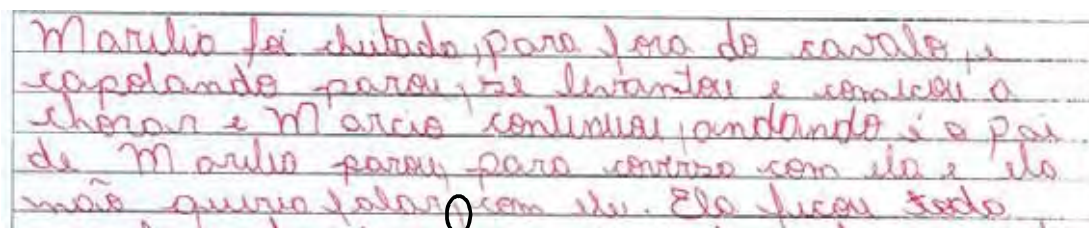 Marulio foi chutado, para fora do cavalo, e
capolando parou, se levantou e começou a
chorar e Marcio continuou, andando é o pai
de Marulio parou, para coversa com ela e ela
não queria falar, com ele. Ela ficou toda